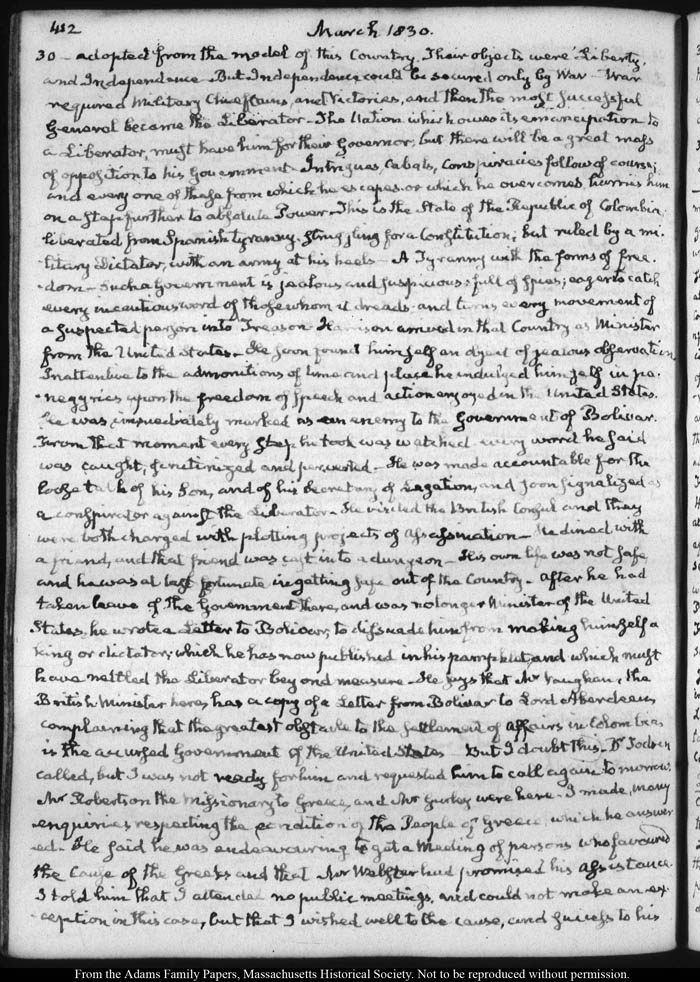 412
March 1830.
30 – adopted from the model of this Country. Their objects were Liberty,
and Independence – But Independence could be secured only by War – War
required Military Chieftains, and Victories, and then the most successful
General became the Liberator – The Nation which owes its emancipation to
a Liberator, must have him for their Governor; but there will be a great mass
of opposition to his Government – Intrigues, Cabals, Conspiracies follow of course;
and every one of these from which he escapes or which he overcomes, hurries him
on a step further to absolute Power – This is the State of the Republic of Colombia
liberated from Spanish tyranny, struggling for a Constitution; but ruled by a mi-
litary Dictator, with an army at his heels – A Tyranny with the forms of free-
dom – Such a Government is jealous and suspicious: full of Spies; eager to catch
every incautious word of those whom it dreads, and turns every movement of
a suspected person into Treason – Harrison arrived in that Country as Minister
from the United States – He soon found himself an object of jealous observation
Inattentive to the admonitions of time and place he indulged himself in pa-
negyrics upon the freedom of speech and action enjoyed in the United States.
He was immediately marked as an enemy to the Government of Bolivar.
From that moment every step he took was watched – every word he said
was caught, scrutinized and perverted – He was made accountable for the
loose talk of his Son, and of his Secretary of Legation, and soon signalized as
a conspirator against the Liberator – He visited the British Consul and they
were both charged with plotting projects of assassination – He dined with
a friend, and that friend was cast into a dungeon – His own life was not safe
and he was at last fortunate in getting safe out of the Country – After he had
taken leave of the Government there, and was no longer Minister of the United
States, he wrote a Letter to Bolivar, to dissuade him from making himself a
King or dictator; which he has now published in his pamphlet, and which must
have nettled the Liberator beyond measure – He says that Mr Vaughan, the
British Minister here, has a copy of a Letter from Bolivar to Lord Aberdeen,
complaining that the greatest obstacle to the settlement of affairs in Colombia
is the accursed Government of the United States But I doubt this. Dr Todsen
called, but I was not ready for him and requested him to call again to morrow.
Mr Robertson the Missionary to Greece, and Mr Gurley were here – I made many
enquiries respecting the condition of the People of Greece, which he answer
-ed. He said he was endeavouring to get a Meeting of persons who favoured
the Cause of the Greeks and that Mr Webster had promised his assistance.
I told him that I attended no public meetings, and could not make an ex-
-ception in this case, but that I wished well to the cause, and success to his
From the Adams Family Papers, Massachusetts Historical Society. Not to be reproduced without permission.